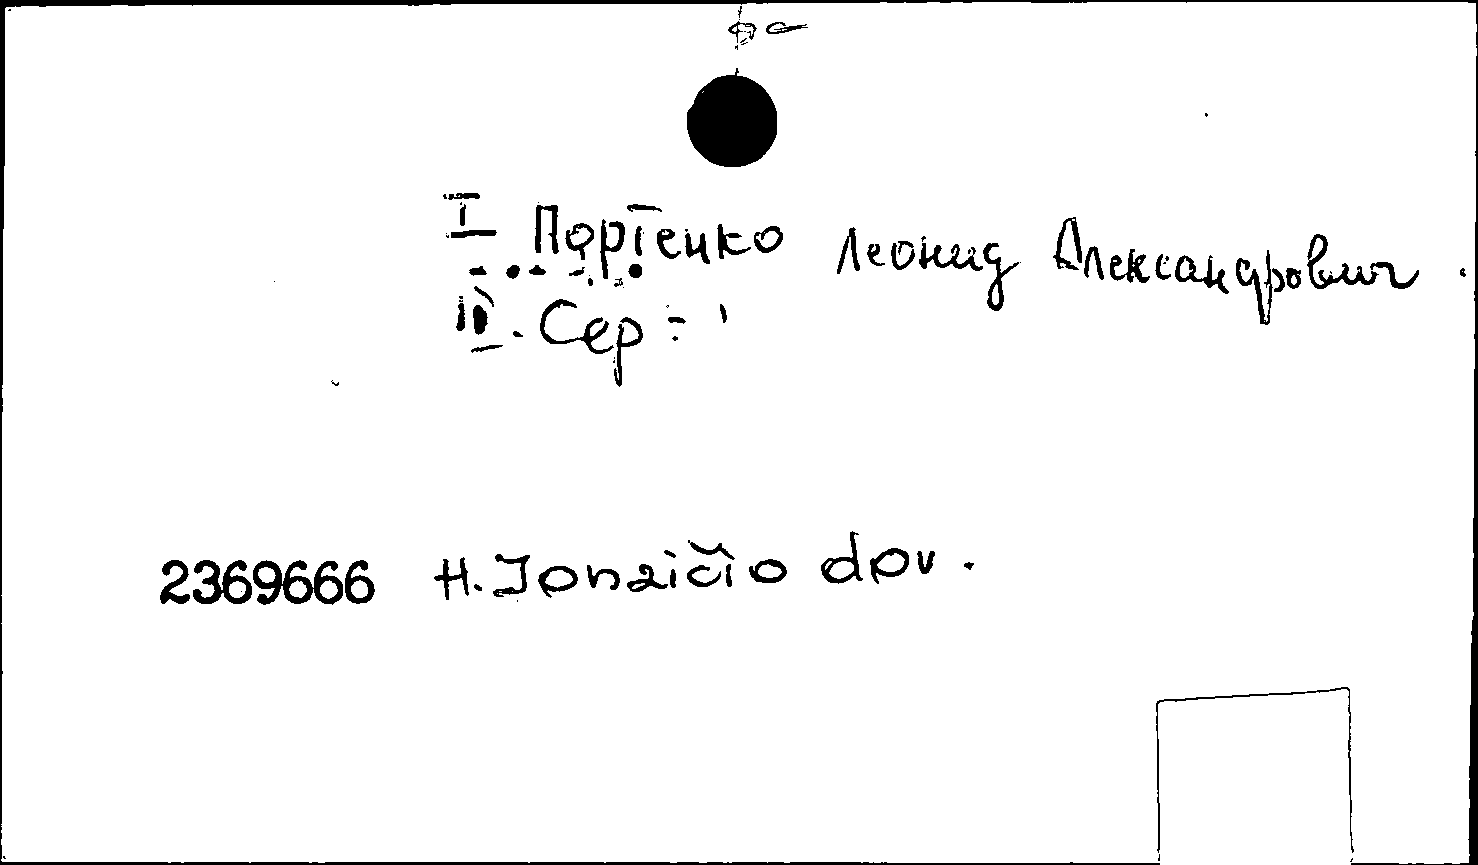 I Портенко Леонид Александрович.
II. Сер.
2369666 H. Jonaičio dov.